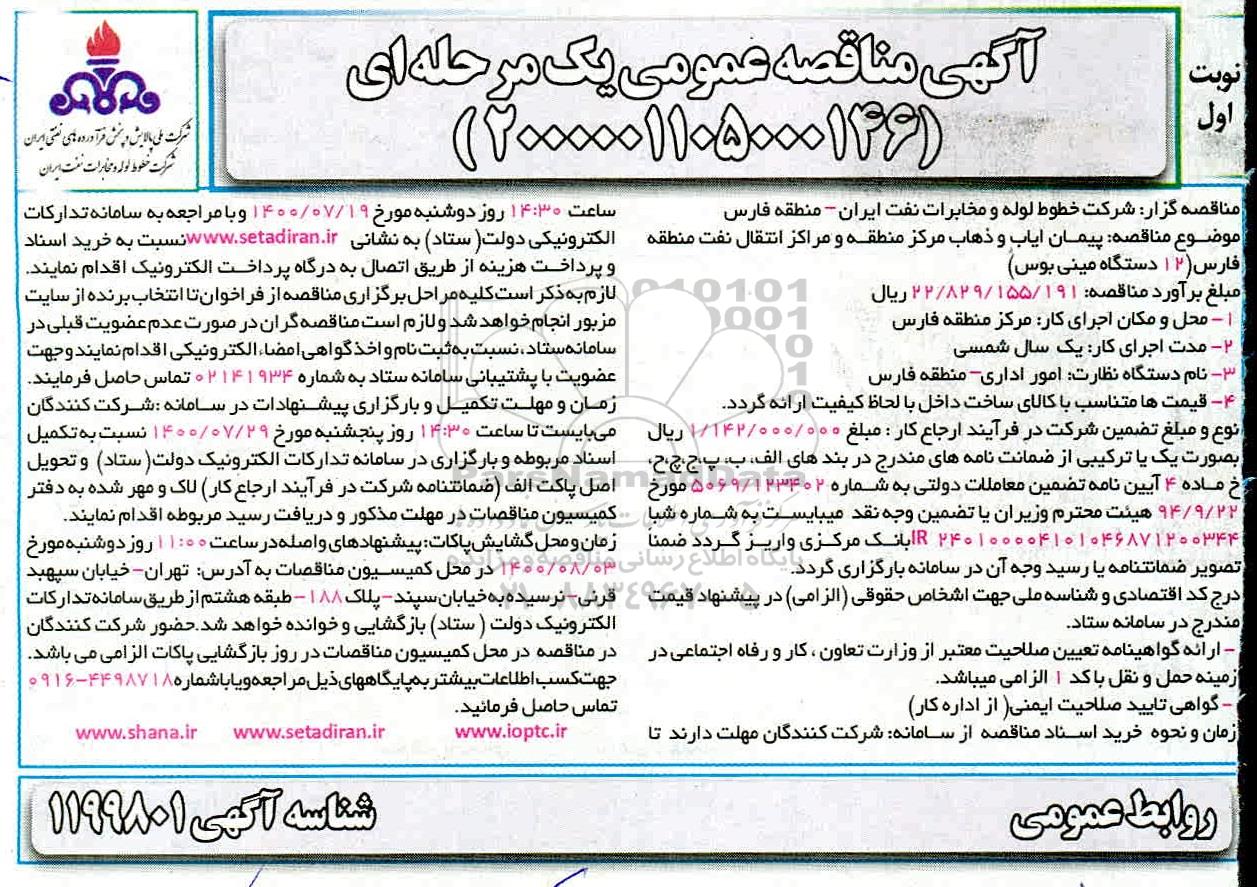 نوبت
اول
آگهی مناقصه عمومی یک مرحله ای
(۲۰۰۰۰۰۱۱۰۵۰۰۰۱۴۶)
شرکت ملی پالایش و پخش فرآورده های نفتی ایران
شرکت خطوط لوله و مخابرات نفت ایران
مناقصه گزار: شرکت خطوط لوله و مخابرات نفت ایران – منطقه فارس
موضـوع مناقصه: پیمـان ایاب و ذهاب مرکز منطقـه و مراکز انتقال نفت منطقه
فارس(۱۲ دستگاه مینی بوس)
مبلغ برآورد مناقصه: ۲۲/۸۲۹/۱۵۵/۱۹۱ ریال
۱– محل و مکان اجرای کار: مرکز منطقه فارس
۲– مدت اجرای کار: یک سال شمسی
۳– نام دستگاه نظارت: امور اداری– منطقه فارس
۴– قیمت ها متناسب با کالای ساخت داخل با لحاظ کیفیت ارائه گردد.
نوع و مبلغ تضمین شرکت در فرآیند ارجاع کار : مبلغ ۱/۱۴۲/۰۰۰/۰۰۰ ریال
بصورت یک یا ترکیبی از ضمانت نامه های مندرج در بند های الف، ب، پ،ج،چ،ح،
خ مـاده ۴ آیین نامه تضمین معاملات دولتی به شـماره ۵۰۶۹/۱۲۳۴۰۲ مورخ
۹۴/۹/۲۲ هیئت محترم وزیران یا تضمین وجه نقد میبایسـت به شـماره شبا
IR ۲۴۰۱۰۰۰۰۴۱۰۱۰۴۶۸۷۱۲۰۰۳۴۴بانـک مرکـزی واریـز گـردد ضمنا
تصویر ضمانتنامه یا رسید وجه آن در سامانه بارگزاری گردد.
درج کد اقتصادی و شناسه ملی جهت اشخاص حقوقی (الزامی) در پیشنهاد قیمت
مندرج در سامانه ستاد.
– ارائه گواهینامه تعیین صلاحیت معتبر از وزارت تعاون ، کار و رفاه اجتماعی در
زمینه حمل و نقل با کد ۱ الزامی میباشد.
– گواهی تایید صلاحیت ایمنی( از اداره کار)
زمان و نحوه خرید اسـناد مناقصه از سـامانه: شرکت کنندگان مهلت دارند تا
ساعت ۱۴:۳۰ روز دوشنبه مورخ ۱۴۰۰/۰۷/۱۹ و با مراجعه به سامانه تدارکات
الکترونیکی دولت( ستاد) به نشانی www.setadiran.irنسبت به خرید اسناد
و پرداخـت هزینه از طریق اتصال به درگاه پرداخـت الکترونیک اقدام نمایند.
لازم به ذکر است کلیه مراحل برگزاری مناقصه از فراخوان تا انتخاب برنده از سایت
مزبور انجام خواهد شد و لازم است مناقصه گران در صورت عدم عضویت قبلی در
سامانه ستاد، نسبت به ثبت نام و اخذ گواهی امضاء الکترونیکی اقدام نمایند و جهت
عضویت با پشتیبانی سامانه ستاد به شماره ۰۲۱۴۱۹۳۴ تماس حاصل فرمایند.
زمـان و مهلـت تکمیـل و بارگزاری پیشـنهادات در سـامانه :شـرکت کنندگان
می‌بایست تا ساعت ۱۴:۳۰ روز پنجشنبه مورخ ۱۴۰۰/۰۷/۲۹ نسبت به تکمیل
اسناد مربوطه و بارگزاری در سامانه تدارکات الکترونیک دولت( ستاد) و تحویل
اصل پاکت الف (ضمانتنامه شرکت در فرآیند ارجاع کار) لاک و مهر شده به دفتر
کمیسیون مناقصات در مهلت مذکور و دریافت رسید مربوطه اقدام نمایند.
زمان و محل گشایش پاکات: پیشنهادهای واصله در ساعت ۱۱:۰۰ روز دوشنبه مورخ
۱۴۰۰/۰۸/۰۳ در محل کمیسـیون مناقصات به آدرس: تهران– خیابان سپهبد
قرنی– نرسیده به خیابان سپند– پلاک ۱۸۸– طبقه هشتم از طریق سامانه تدارکات
الکترونیک دولت ( ستاد) بازگشایی و خوانده خواهد شد.حضور شرکت کنندگان
در مناقصه در محل کمیسیون مناقصات در روز بازگشایی پاکات الزامی می باشد.
جهت کسب اطلاعات بیشتر به پایگاههای ذیل مراجعه و یا باشماره ۰۹۱۶–۴۴۹۸۷۱۸
تماس حاصل فرمائید.
www.ioptc.ir www.setadiran.ir www.shana.ir
روابط عمومی
شناسه آگهی ۱۱۹۹۸۰۱
ParsNamadData
پایگاه اطلاع رسانی مناقصه و مزایده
۰۲۱-۸۸۳۴۹۶۷۰-۵